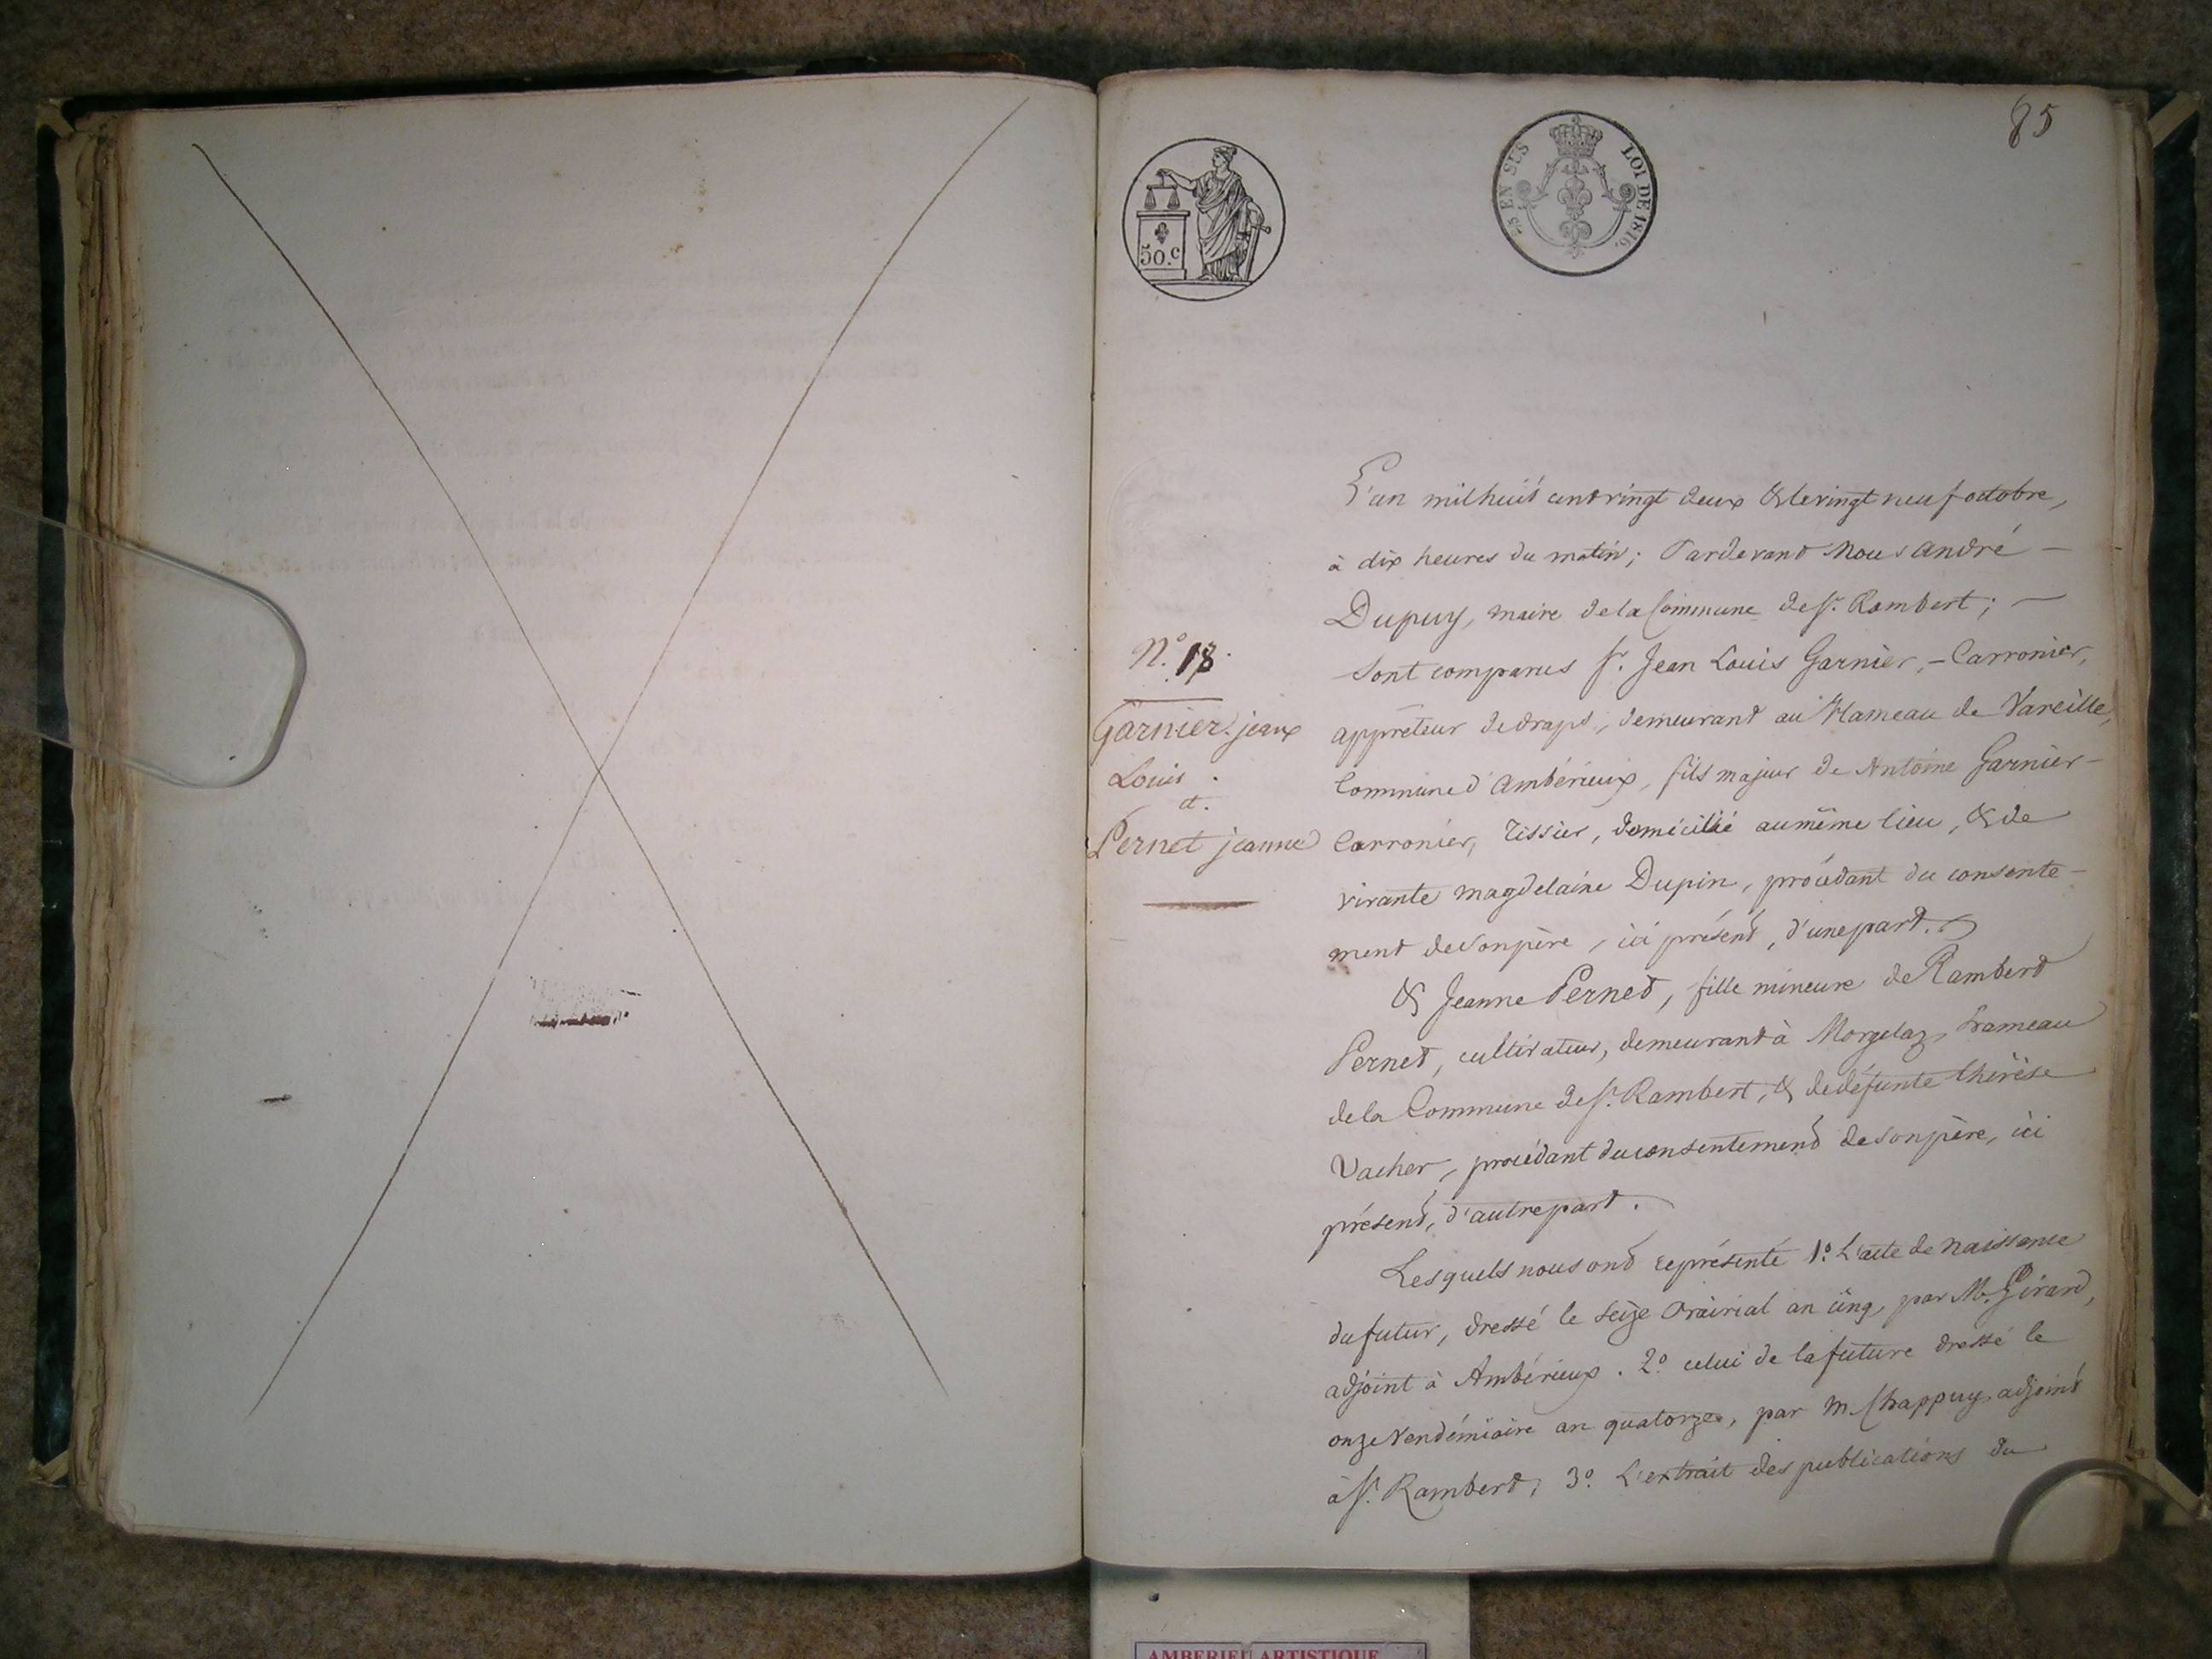 85
50.c
EN SUS
LOI DE 1816.
L'an mil huit cent vingt deux & le vingt neuf octobre,
à dix heures du matin; Pardevant Nous André —
Dupuy, maire de la Commune de St. Rambert; —
Sont comparus Sr. Jean Louis Garnier, - Carronier,
appreteur de draps, demeurant au Hameau de Vareille,
Commune d'Ambérieux, fils majeur de Antoine Garnier -
Carronier, Tissier, domicilié au même lieu, & de
vivante magdelaine Dupin, procédant du consente-
ment de son père, ici présent, d'une part.
& Jeanne Pernet, fille mineure de Rambert
Pernet, cultivateur, demeurant à Morgelaz, hameau
de la Commune de St. Rambert, & de défunte thérèse
Vacher, procédant du consentement de son père, ici
présent, d'autre part.
Lesquels nous ont représenté 1.o L'acte de naissance
du futur, dressé le seize Prairial an cinq, par Mr. Girard,
adjoint à Ambérieux. 2.o celui de la future dressé le
onze Vendémiaire an quatorze, par m. Chappuy adjoint
à St. Rambert; 3.o L'extrait des publications du
N.o 18.
Garnier jean
Louis.
et.
Pernet jeanne
AMBERIEU ARTISTIQUE